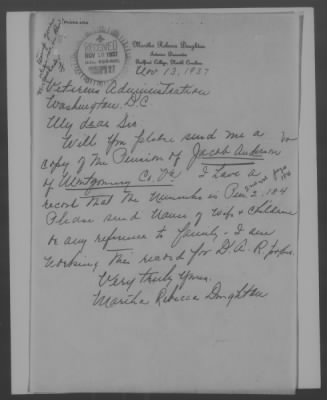 Martha Rebecca Doughton
Interior Decorator
Guilford College, North Carolina
RECEIVED
NOV 16 1937
Nov 13, 1937
Veterans Administration
Washington, D.C
My dear Sir
Will you please send me a
copy of the Pension of Jacob Anderson
of Montgomery Co, Va I have a
record that the number is Pen 2.184
Please send name of wife & children
or any reference to family. I am
working this record for D.A.R. paper.
Very truly yours.
Martha Rebecca Doughton